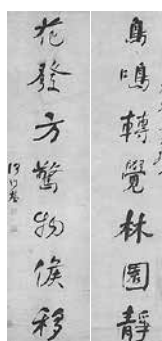 鳥鳴轉覺林園靜
花發方驚物候移